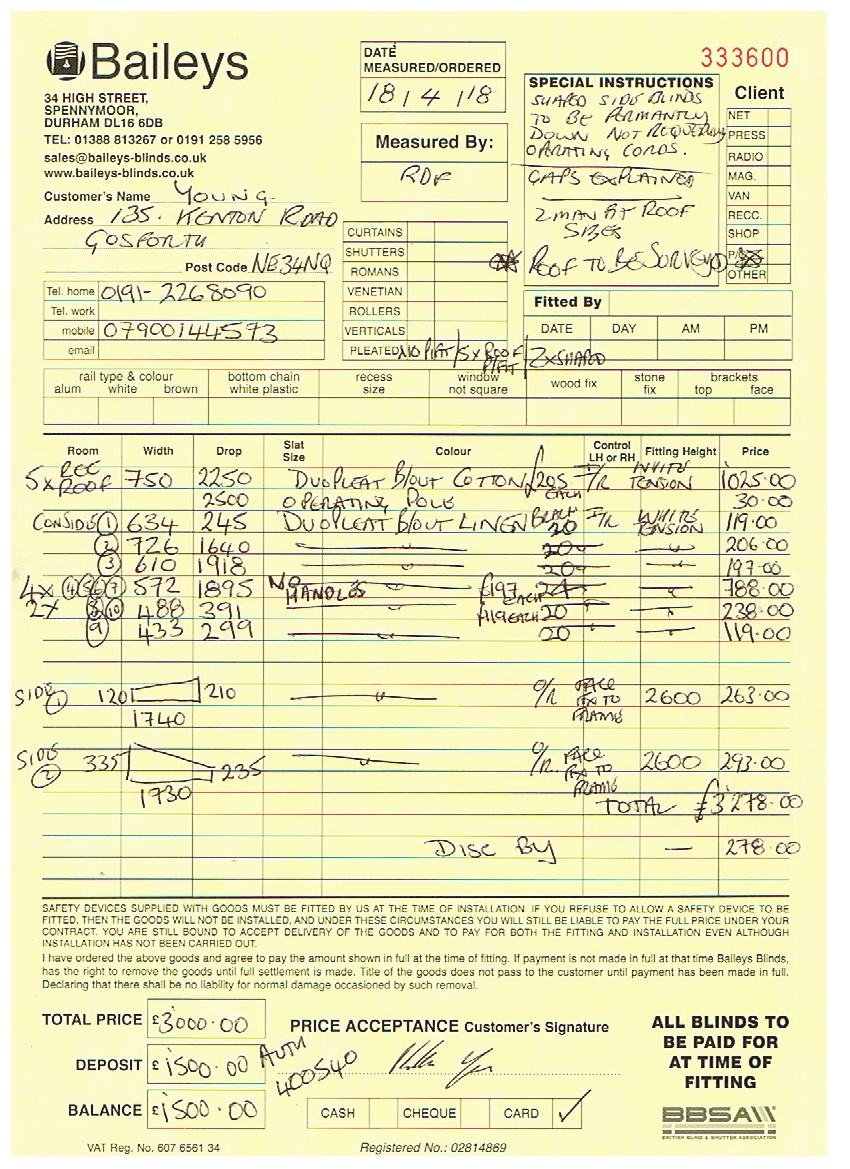 Baileys
34 HIGH STREET,
SPENNYMOOR,
DURHAM DL16 6DB
TEL: 01388 813267 or 0191 258 5956
sales@baileys-blinds.co.uk
www.baileys-blinds.co.uk
Customer's Name YOUNG
Address 135. KENTON ROAD
GOSFORTH
Post Code NE34NQ
Tel. home 0191-2268090
Tel. work
mobile 07900144573
email
DATE
MEASURED/ORDERED
18/4/18
Measured By:
RDF
CURTAINS
SHUTTERS
ROMANS
VENETIAN
ROLLERS
VERTICALS
PLEATED x10 P/FIT/5x ROOF P/FIT/2xSHAPED
333600
SPECIAL INSTRUCTIONS
SHAPED SIDE BLINDS
TO BE PERMANTLY
DOWN NOT REQUERING
OPERATING CORDS.
GAPS EXPLAINED
2 MAN FIT ROOF
SIZES
ROOF TO BE SURVEYD
Client
NET
PRESS
RADIO
MAG.
VAN
RECC.
SHOP
OTHER
Fitted By
DATE DAY AM PM
rail type & colour
alum white brown
bottom chain
white plastic
recess
size
window
not square
wood fix
stone
fix
brackets
top face
Room Width Drop Slat Size Colour Control LH or RH Fitting Height Price
5x REC ROOF 750 2250 DUOPLEAT B/OUT COTTON £205 EACH I/R WHITE TENSION 1025.00
2500 OPERATING POLE 30.00
CONSIDE 1 634 245 DUOPLEAT B/OUT LINEN BLACK 20 I/R WHITE TENSION 119.00
2 726 1640 20 206.00
3 610 1918 20 197.00
4x 4 5 6 7 572 1895 NO HANDLES £197 EACH 24 788.00
2x 8 10 488 391 £119 EACH 20 238.00
9 433 299 20 119.00
SIDE 1 120 210 O/R FACE FIX TO FRAME 2600 263.00
1740
SIDE 2 335 235 O/R. FACE FIX TO FRAME 2600 293.00
1730
TOTAL £3278.00
DISC BY — 278.00
SAFETY DEVICES SUPPLIED WITH GOODS MUST BE FITTED BY US AT THE TIME OF INSTALLATION. IF YOU REFUSE TO ALLOW A SAFETY DEVICE TO BE
FITTED, THEN THE GOODS WILL NOT BE INSTALLED, AND UNDER THESE CIRCUMSTANCES YOU WILL STILL BE LIABLE TO PAY THE FULL PRICE UNDER YOUR
CONTRACT. YOU ARE STILL BOUND TO ACCEPT DELIVERY OF THE GOODS AND TO PAY FOR BOTH THE FITTING AND INSTALLATION EVEN ALTHOUGH
INSTALLATION HAS NOT BEEN CARRIED OUT.
I have ordered the above goods and agree to pay the amount shown in full at the time of fitting. If payment is not made in full at that time Baileys Blinds,
has the right to remove the goods until full settlement is made. Title of the goods does not pass to the customer until payment has been made in full.
Declaring that there shall be no liability for normal damage occasioned by such removal.
TOTAL PRICE £3000.00
DEPOSIT £1500.00 AUTH 400540
BALANCE £1500.00
PRICE ACCEPTANCE Customer's Signature
CASH CHEQUE CARD ✓
ALL BLINDS TO
BE PAID FOR
AT TIME OF
FITTING
BBSA
BRITISH BLIND & SHUTTER ASSOCIATION
VAT Reg. No. 607 6561 34
Registered No.: 02814869